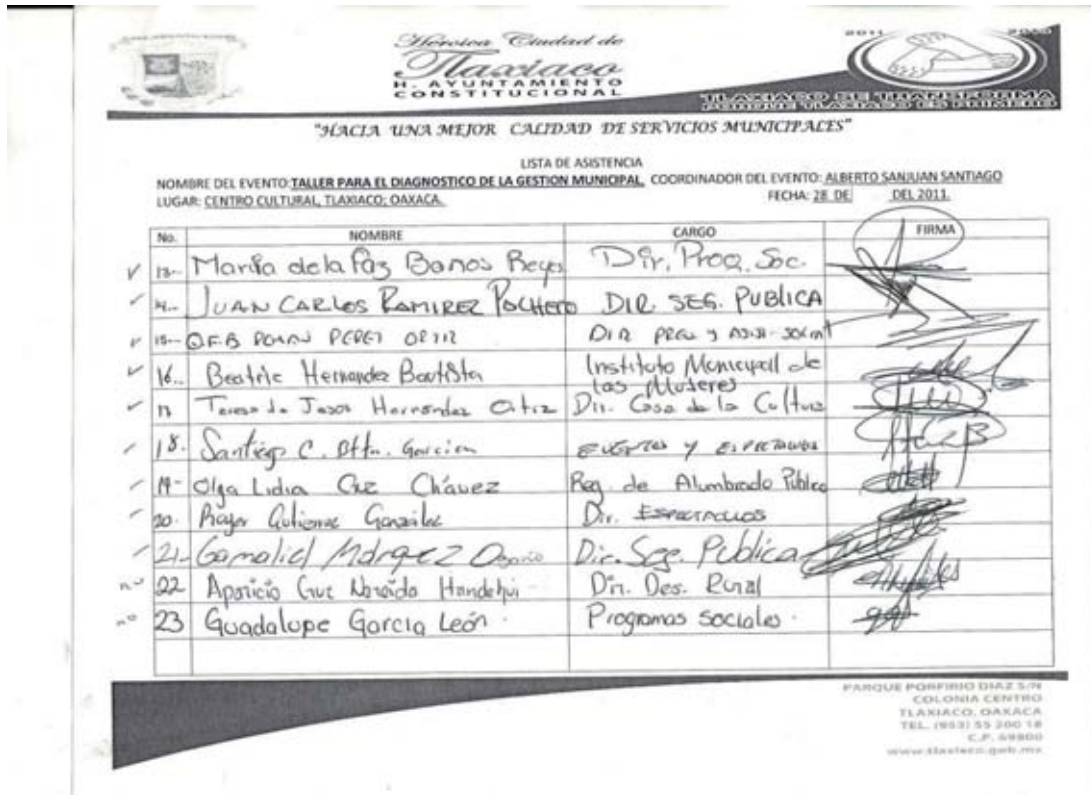 Heroica Ciudad de
Tlaxiaco
H. AYUNTAMIENTO
CONSTITUCIONAL
2011
TLAXIACO SE TRANSFORMA
PORQUE TLAXIACO ES PRIMERO
"HACIA UNA MEJOR CALIDAD DE SERVICIOS MUNICIPALES"
LISTA DE ASISTENCIA
NOMBRE DEL EVENTO: TALLER PARA EL DIAGNOSTICO DE LA GESTION MUNICIPAL, COORDINADOR DEL EVENTO: ALBERTO SANJUAN SANTIAGO
LUGAR: CENTRO CULTURAL, TLAXIACO; OAXACA. FECHA: 28 DE DEL 2011.
No. NOMBRE CARGO FIRMA
13.- María de la Paz Banos Reyes Dir. Prog. Soc.
14.- JUAN CARLOS RAMIREZ PACHECO DIR. SEG. PUBLICA
15.- PEREZ ORTIZ DIR
16.. Beatriz Hernandez Bautista Instituto Municipal de
las Mujeres
17 Teresa de Jesus Hernández Ortiz Dir. Casa de la Cultura
18. Santiago C. Btta. García EVENTOS Y ESPECTACULOS
19- Olga Lidia Cruz Chávez Reg. de Alumbrado Público
20. Gutierrez González Dir. ESPECTACULOS
21- Gamaliel Márquez Dir. Seg. Publica
no 22 Aparicio Cruz Dir. Des. Rural
no 23 Guadalupe García León. Programas Sociales.
PARQUE PORFIRIO DIAZ S/N
COLONIA CENTRO
TLAXIACO, OAXACA
TEL. (953) 55 200 18
C.P. 69800
www.tlaxiaco.gob.mx